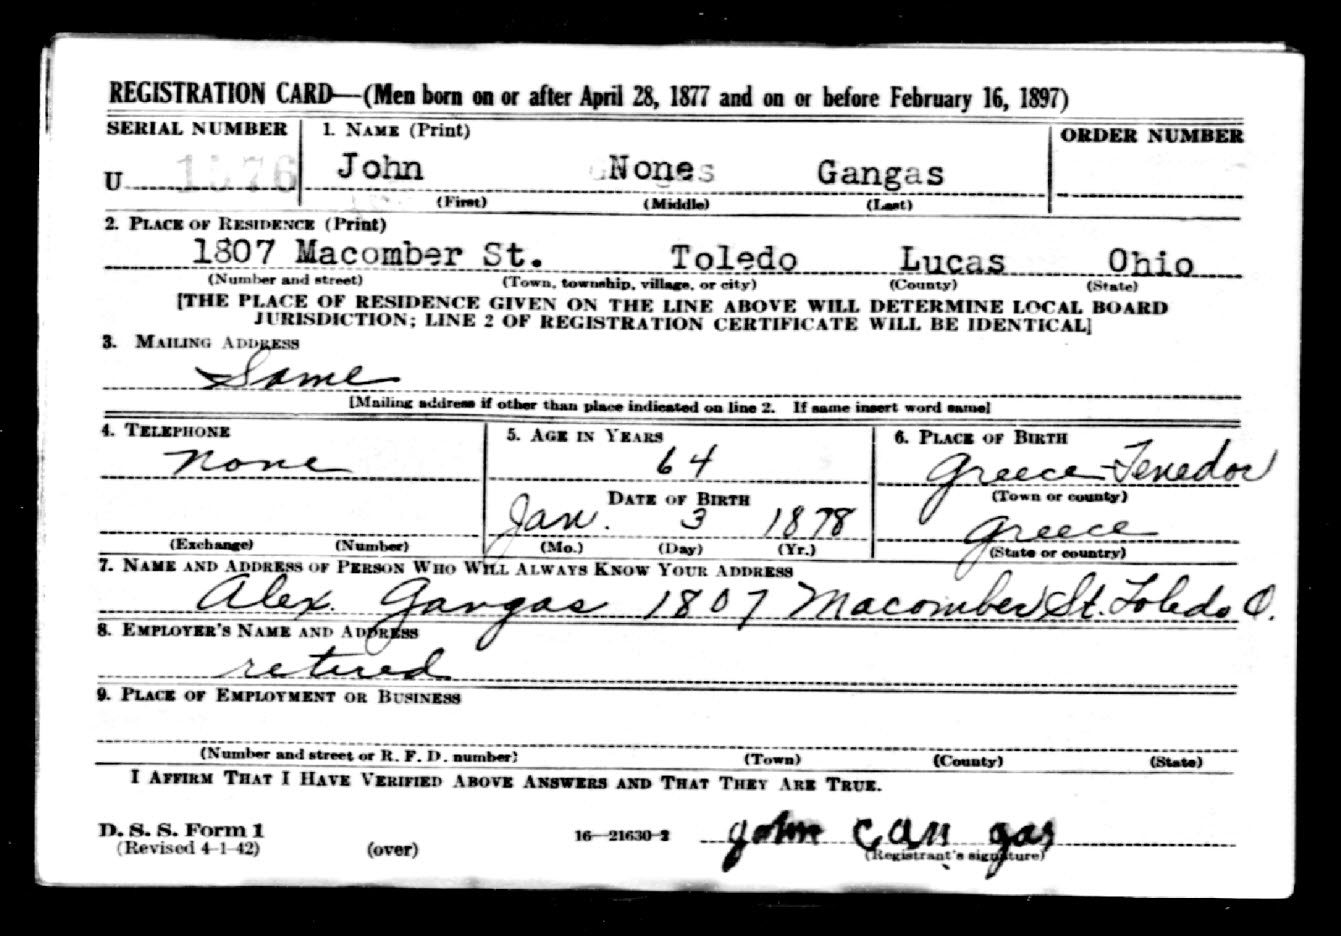 REGISTRATION CARD—(Men born on or after April 28, 1877 and on or before February 16, 1897)
SERIAL NUMBER 1. NAME (Print) ORDER NUMBER
U 1576 John Nones Gangas
(First) (Middle) (Last)
2. PLACE OF RESIDENCE (Print)
1807 Macomber St. Toledo Lucas Ohio
(Number and street) (Town, township, village, or city) (County) (State)
[THE PLACE OF RESIDENCE GIVEN ON THE LINE ABOVE WILL DETERMINE LOCAL BOARD
JURISDICTION; LINE 2 OF REGISTRATION CERTIFICATE WILL BE IDENTICAL]
3. MAILING ADDRESS
Same
[Mailing address if other than place indicated on line 2. If same insert word same]
4. TELEPHONE 5. AGE IN YEARS 6. PLACE OF BIRTH
None 64 Greece-Tenedos
DATE OF BIRTH (Town or county)
Jan. 3 1878 Greece
(Exchange) (Number) (Mo.) (Day) (Yr.) (State or country)
7. NAME AND ADDRESS OF PERSON WHO WILL ALWAYS KNOW YOUR ADDRESS
Alex. Gangas 1807 Macomber St. Toledo O.
8. EMPLOYER'S NAME AND ADDRESS
retired
9. PLACE OF EMPLOYMENT OR BUSINESS
(Number and street or R. F. D. number) (Town) (County) (State)
I AFFIRM THAT I HAVE VERIFIED ABOVE ANSWERS AND THAT THEY ARE TRUE.
D. S. S. Form 1
(Revised 4-1-42) (over) 16—21630-2 john can gas
(Registrant's signature)